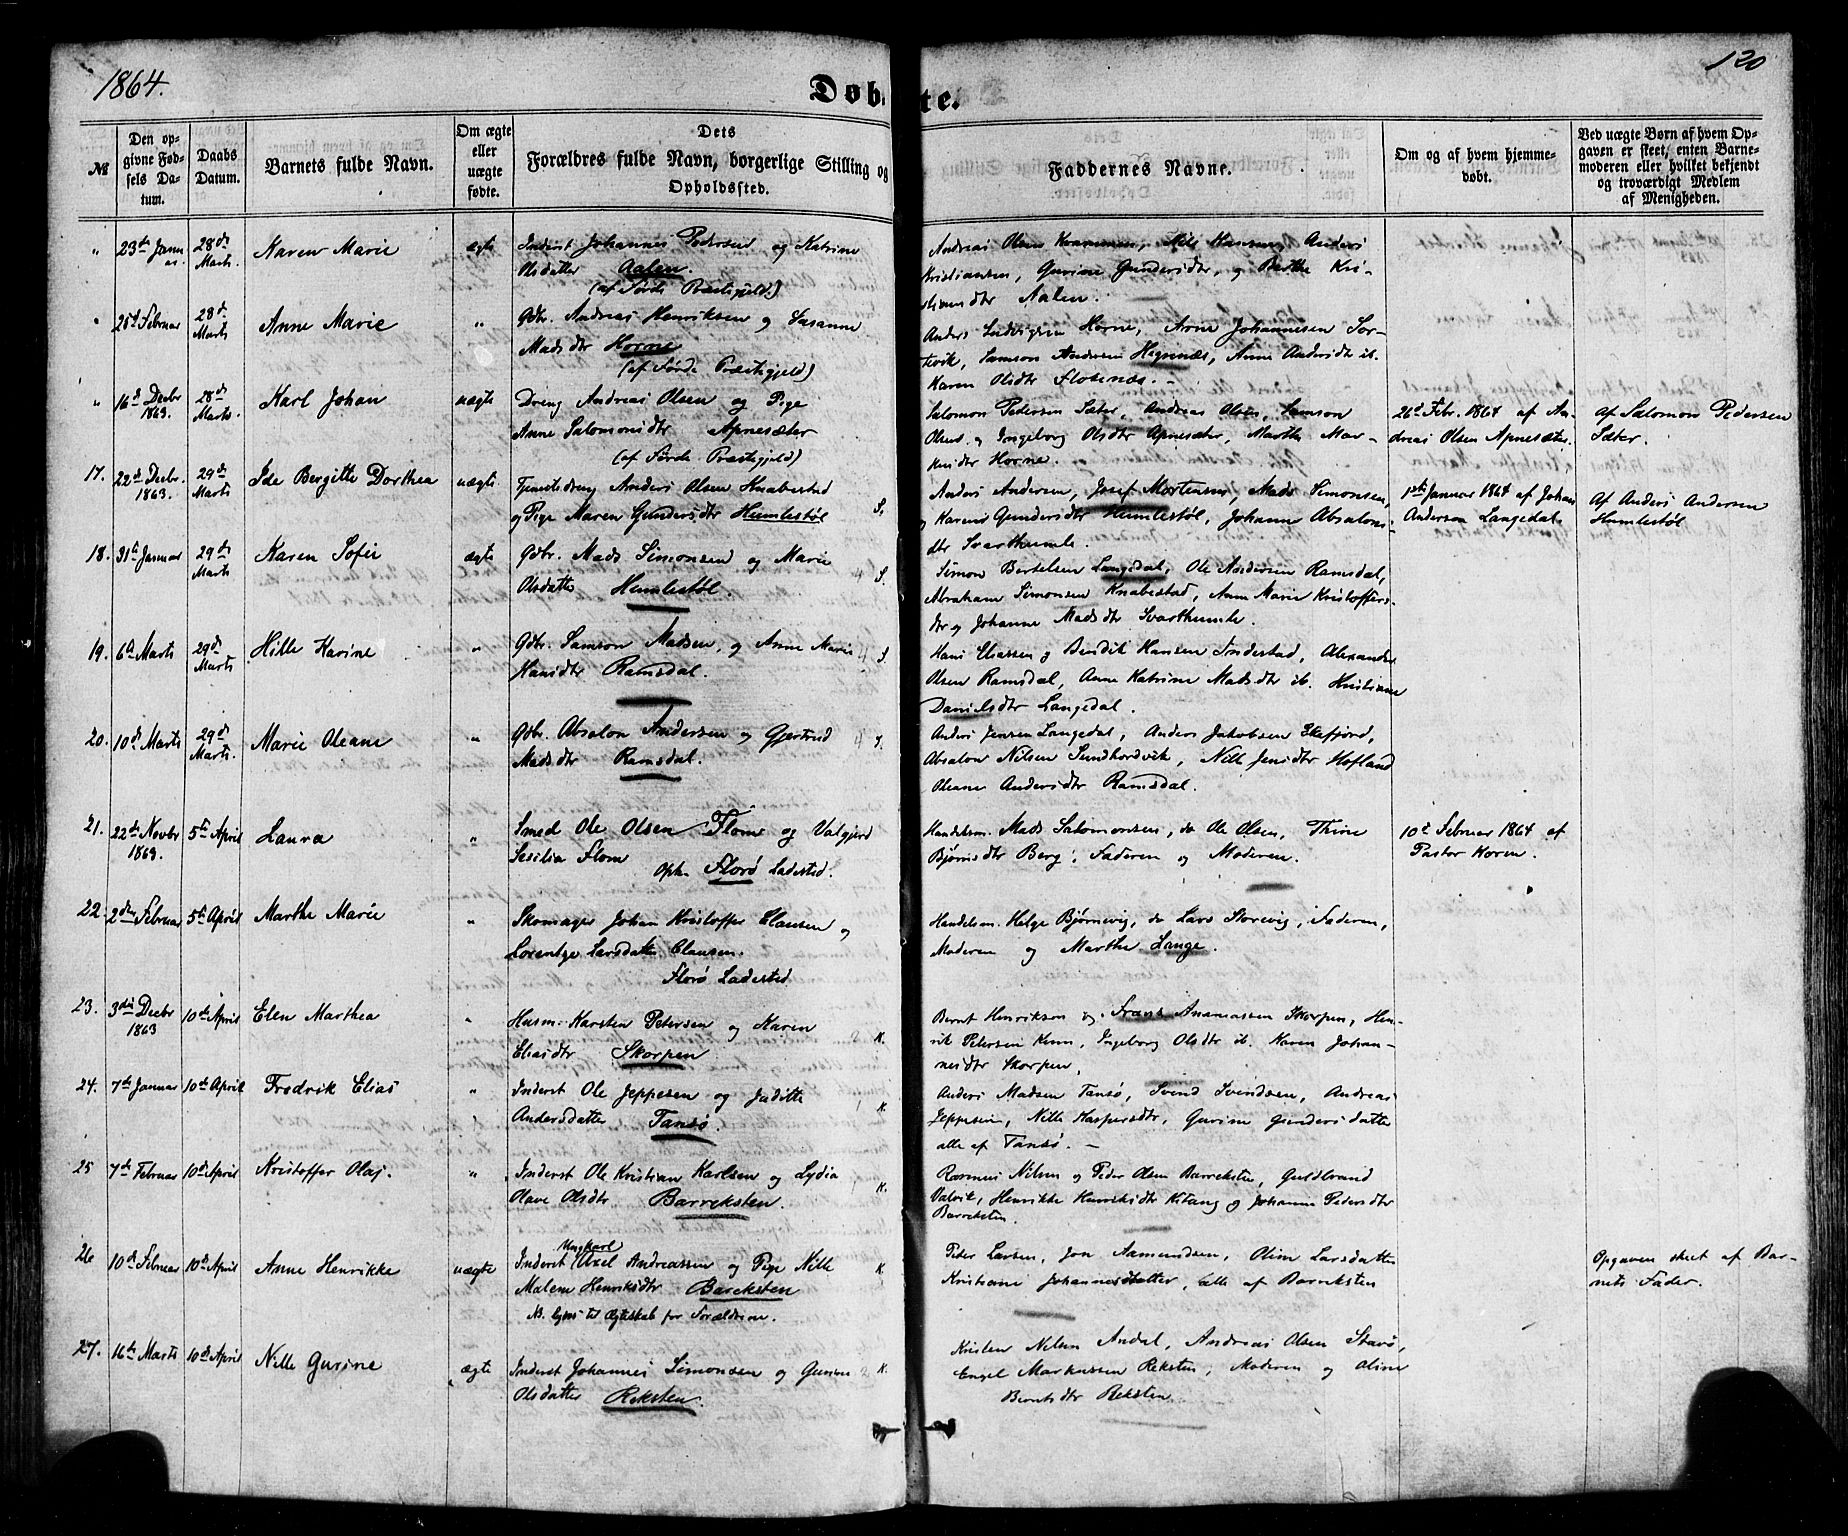 1864.
120
Døbte.
№
Den opgivne Fødsels Datum.
Daabs Datum.
Barnets fulde Navn.
Om ægte eller uægte fødte.
Dets Forældres fulde Navn, borgerlige Stilling og Opholdssted.
Faddernes Navne.
Om og af hvem hjemmedøbt.
Ved uægte Børn af hvem Opgaven er skeet, enten Barnemoderen eller hvilket bekjendt og troværdigt Medlem af Menigheden.
" 23de Januar 28de Marts Karen Marie ægte Inderst Johannes Pedersen og Katrine
Olsdatter Aalen.
(af Førde Præstegjeld.)
Andreas Olsen Anders
Kristiansen, Gurine Gundersdtr, og Berthe Kri-
stiansdtr Aalen.
" 25d Februar 28de Marts Anne Marie " Gdbr. Andreas Henriksen og Susanne
Madsdtr Horne
(af Førde Præstegjeld)
Anders Ludvigsen Horne, Arne Johannesen Sor-
tevik, Samson Andersen Hegrenæs, Anne Andersdtr ib.
Karen Olsdtr Flokenæs. -
" 16d Decbr 1863. 28de Marts Karl Johan uægte Dreng Andreas Olsen og Pige
Anne Salomonsdtr Apnesæter
(af Førde Præstegjeld)
Salomon Pedersen Sæter, Andreas Olsen, Samson
Olsens. og Ingeborg Olsdtr Apnesæter, Marthe Mar-
kusdtr Horne.
26d Febr. 1864 af An-
dreas Olsen Apnesæter.
af Salomon Pedersen
Sæter.
17. 22de Decbr. 1863. 29de Marts Ide Bergitte Dorthea uægte Tjenestedreng Anders Olsen Knabestad
og Pige Maren Gundersdtr Humlestøl S.
Anders Andersen, Josef Mortensen, Mads Simonsen,
Karen Gundersdtr Humlestøl, Johanne Absalons-
dtr Svarthumle.
1ste Januar 1864 af Johan
Anderson Langedal.
Af Anders Andersen
Humlestøl
18. 31te Januar 29de Marts Karen Sofie ægte Gdbr. Mads Simonsen og Marie
Olsdatter Humlestøl. 4 S.
Simon Bertelsen Langedal, Ole Andersen Ramsdal,
Abraham Simonsen Knabestad, Anne Marie Kristoffers-
dtr og Johanne Madsdtr Svarthumle.
19. 6te Marts 29de Marts Hille Karine " Gdbr. Samson Madsen, og Anne Marie
Hansdtr Ramsdal. 4 S.
Hans Eliassen og Bendik Hansen Indestad, Alexander
Olsen Ramsdal, Anne Katrine Madsdtr ib. Kristiane
Danielsdtr Langedal.
20. 10de Marts 29de Marts. Marie Oleane " Gdbr. Absalon Andersen og Gjertrud
Madsdtr Ramsdal. 4 S.
Anders Jensen Langedal, Anders Jakobsen Ekefjord,
Absalon Nilsen Sundhordvik, Nille Jensdtr Hofland
Oleane Andersdtr Ramsdal.
21. 22de Novbr 1863. 5te April Laura " Smed Ole Olsen Flom og Valgjerd
Sesilia Flom
Oph. Florø Ladested.
Handelsm. Mads Salomonsen, do Ole Olsen, Thine
Bjørnsdtr Berg, Faderen og Moderen.
10de Februar 1864 af
Pastor Koren.
22. 2den Februar 5te April Marthe Marie " Skomager Johan Kristoffer Clausen og
Lorentze Larsdatter Clausen.
Florø Ladested
Handelsm. Helge Bjørnevig, do Lars Storevig, Faderen,
Moderen og Marthe Lange.
23. 3die Decbr 1863 10de April Elen Marthea " Husm. Karsten Petersen og Karen
Eliasdtr Skorpen 2 K.
Bernt Henriksen og Frans Ananiassen Skorpen, Hen-
rik Petersen Kinn, Ingeborg Olsdtr ib. Karen Johan-
nesdtr Skorpen,
24. 7de Januar 10de April Fredrik Elias " Inderst Ole Jeppesen og Juditte
Andersdatter Tansø. 1 K.
Anders Madsen Tansø, Svend Svendsen, Andreas
Jeppesen, Nille Kaspersdtr, Gurine Gundersdatter
alle af Tansø. -
25 7de Februar 10de April Kristoffer Olaj. " Inderst Ole Kristian Karlsen og Lydia
Olave Olsdtr Barreksten. K.
Rasmus Nilsen og Peder Olsen Barreksten, Guldbrand
Valvik, Henrikke Henriksdtr Kitang og Johanne Pedersdtr
Barreksten.
26 10de Februar 10de April Anne Henrikke uægte Ungkarl
Inderst Axel Andreassen og Pige Nille
Malene Henriksdtr Bareksten K.
NB. lyses til Ægteskab for Forældrene.
Peter Larsen, Jon Aamundsen, Oline Larsdatter
Kristiane Johannesdatter, alle af Barreksten
Opgaven skeet af Bar-
nets Fader.
27. 16de Marts 10de April Nille Gurine ægte Inderst Johannes Simonsen og Gurine
Olsdatter Reksten. 2 K.
Kristen Nilsen Andal, Andreas Olsen Stavø,
Engel Markussen Reksten, Moderen og Oline
Berntsdtr Reksten.